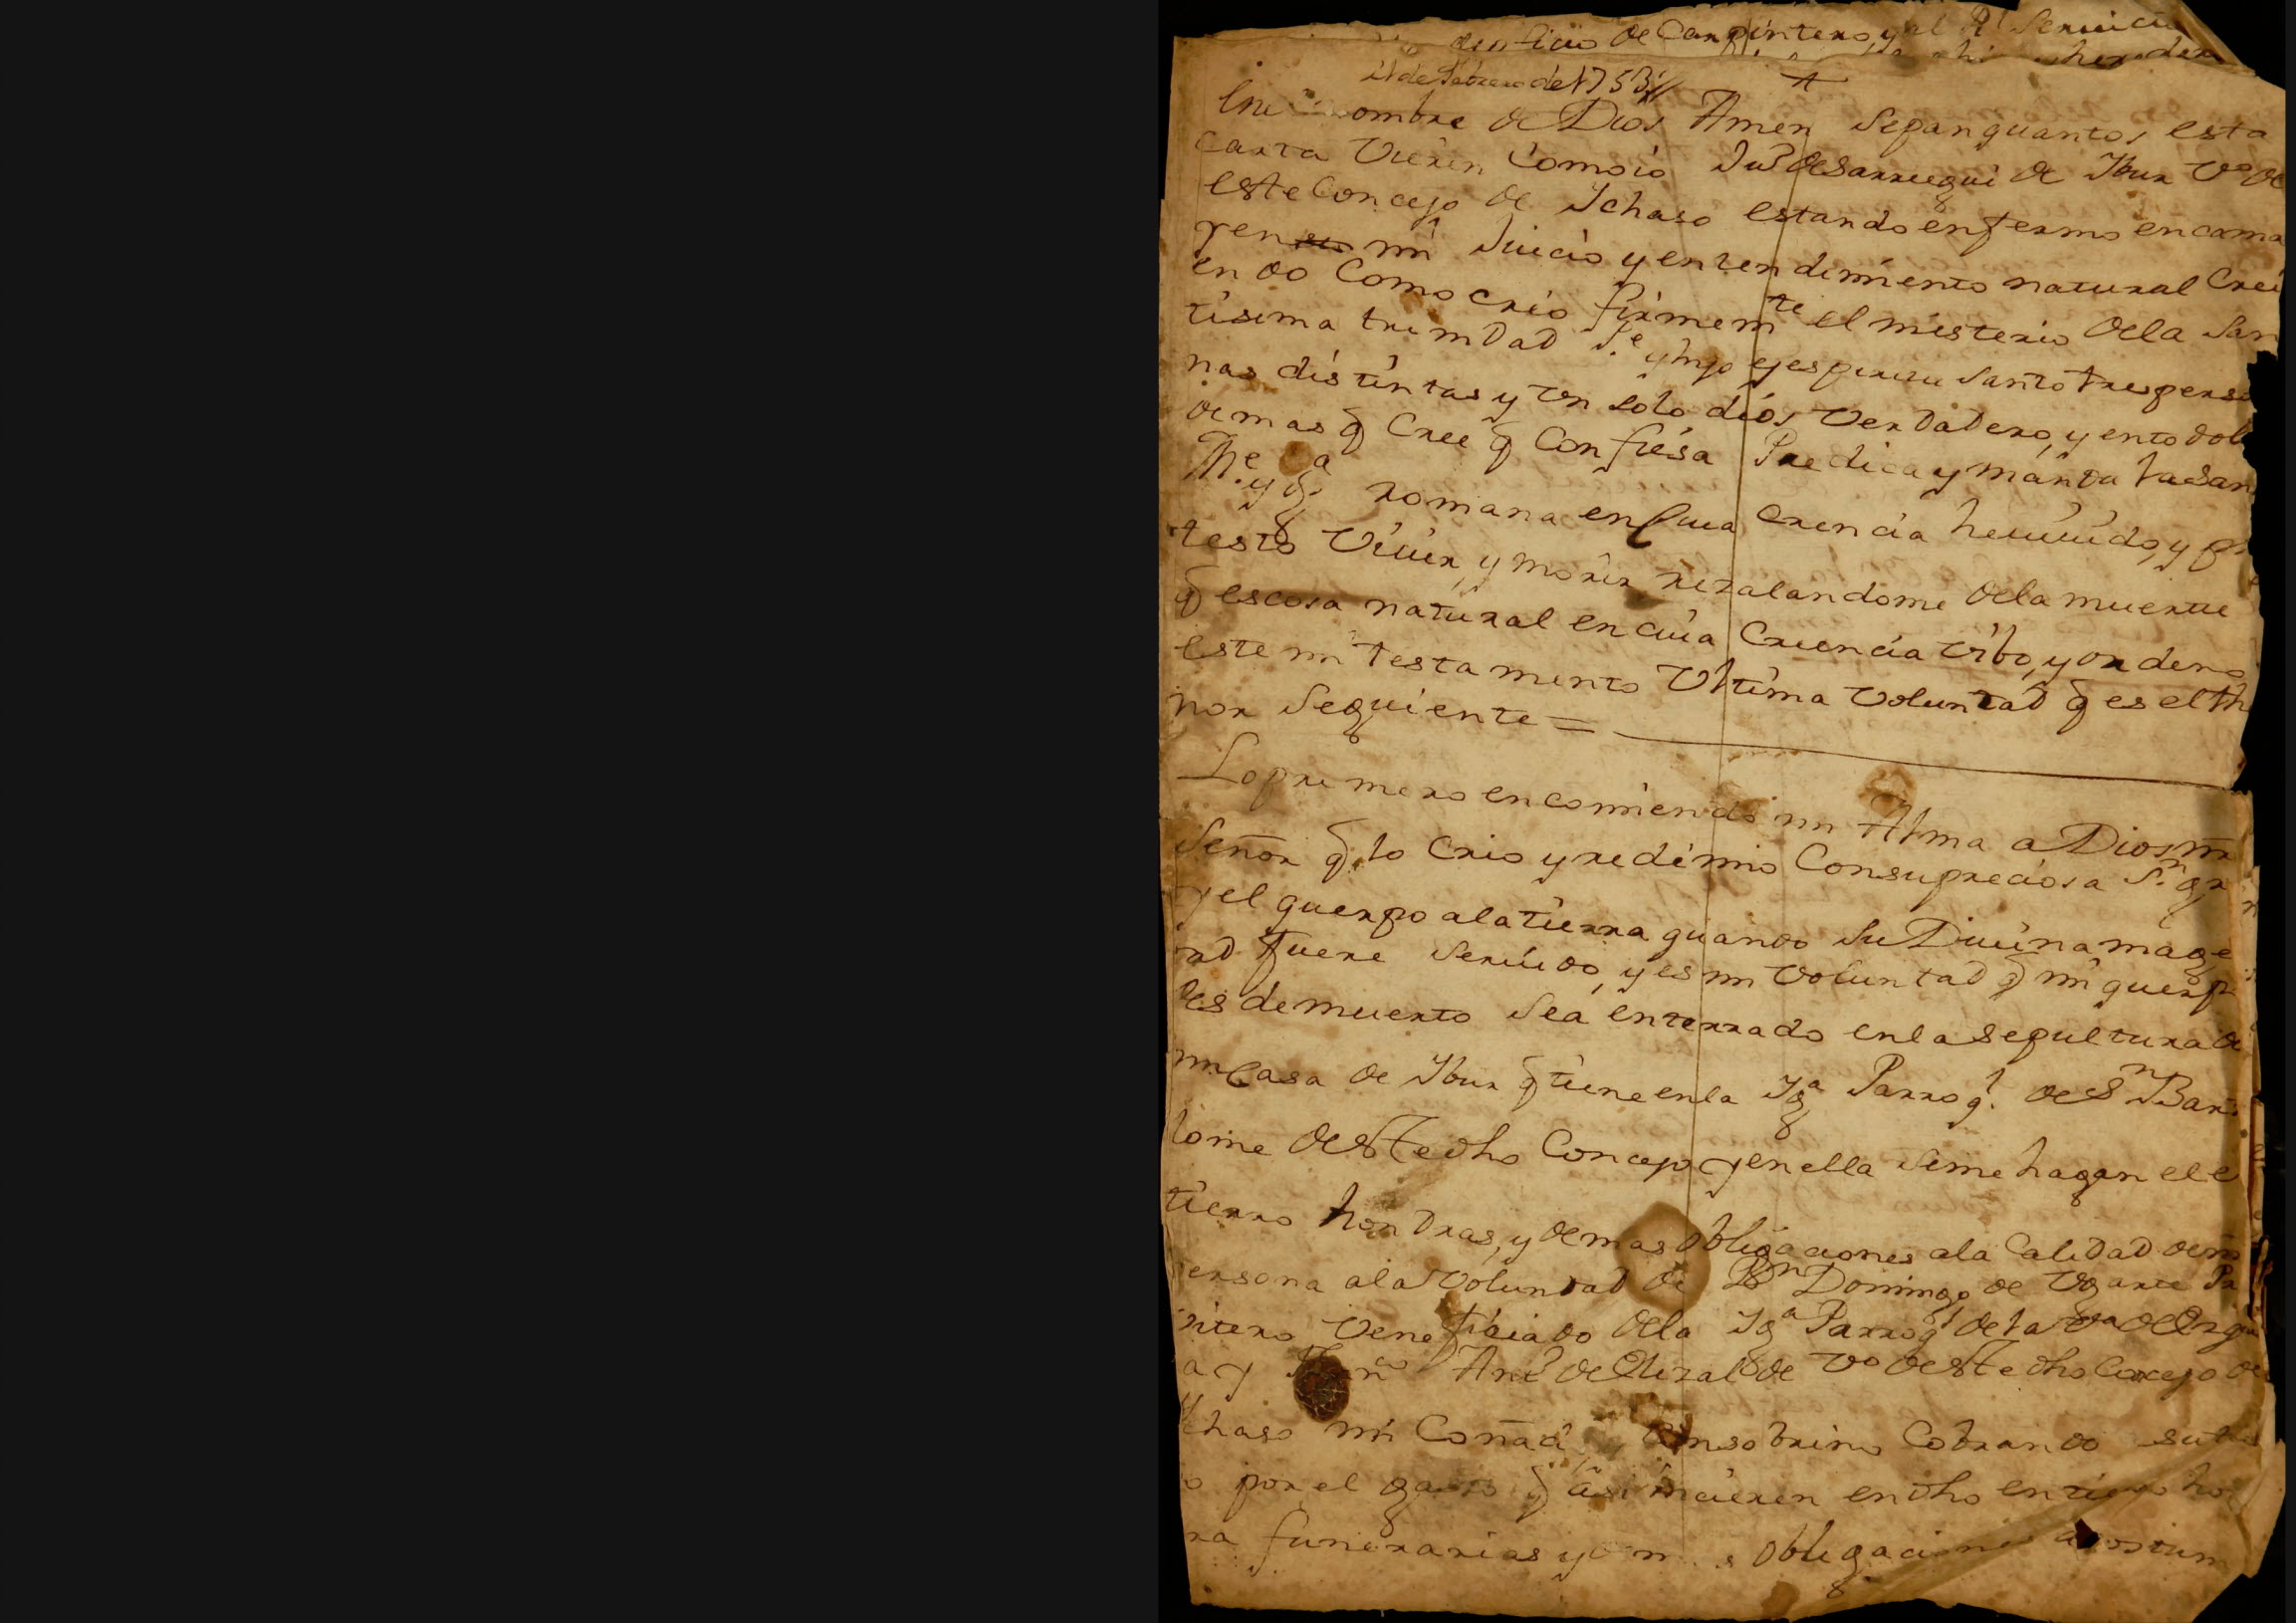 de oficio de Carpintero, y el Rl Seruicio
11 de Febrero de 1753 //
En e ombre de Dios Amen Sepan quantos esta
carta Vieren Como io Juo de Sarriegui de Ybur Vo de
este Concejo de Ichaso estando enfermo en cama
y en mi Juicio y entendimiento natural Crei
endo Como crio firmemte el misterio dela San
tisima trinidad Pe y hijo y espiritu Santo tres perso
nas distintas y Un solo dios Verdadero, y en todo lo
demas q Cree q Confiesa Predica y manda la San
Me. y ga romana en Cuia Crencia he uiuido, y p
testo Viuir, y morir rezalandome dela muerte
q es cosa natural en cuia Criencia Vibo, y ordeno
este mi testamento Ultima Voluntad q es el th
nor Seguiente =
Lo primero encomiendo mi Alma a Dios nr
Señor q lo Crio y redimio Con su preciosa Sn gr
y el querpo a la tierra quando Su Diuina mage
tad fuere Seruido, y es mi Voluntad q mi querp
des de muerto Sea enterrado en la sepultura de
mi Casa de Ybur q tiene en la Yga Parroql. de Sn Bar
lome de este dho Concejo y en ella Se me hagan el e
tierro hondras, y demas obligaciones a la Calidad de mi
persona a la Voluntad de Dn Domingo de Ugarte Pr
uitero Veneficiado dela Yga Parroql de la Va de
a y Anto de Elizalde Vo de este dho Concejo de
chaso mi Coñad sobrino Cobrando su
o por el gasto q asi hicieren en dho entierro ho
ra funerarias y obligaciones acostum